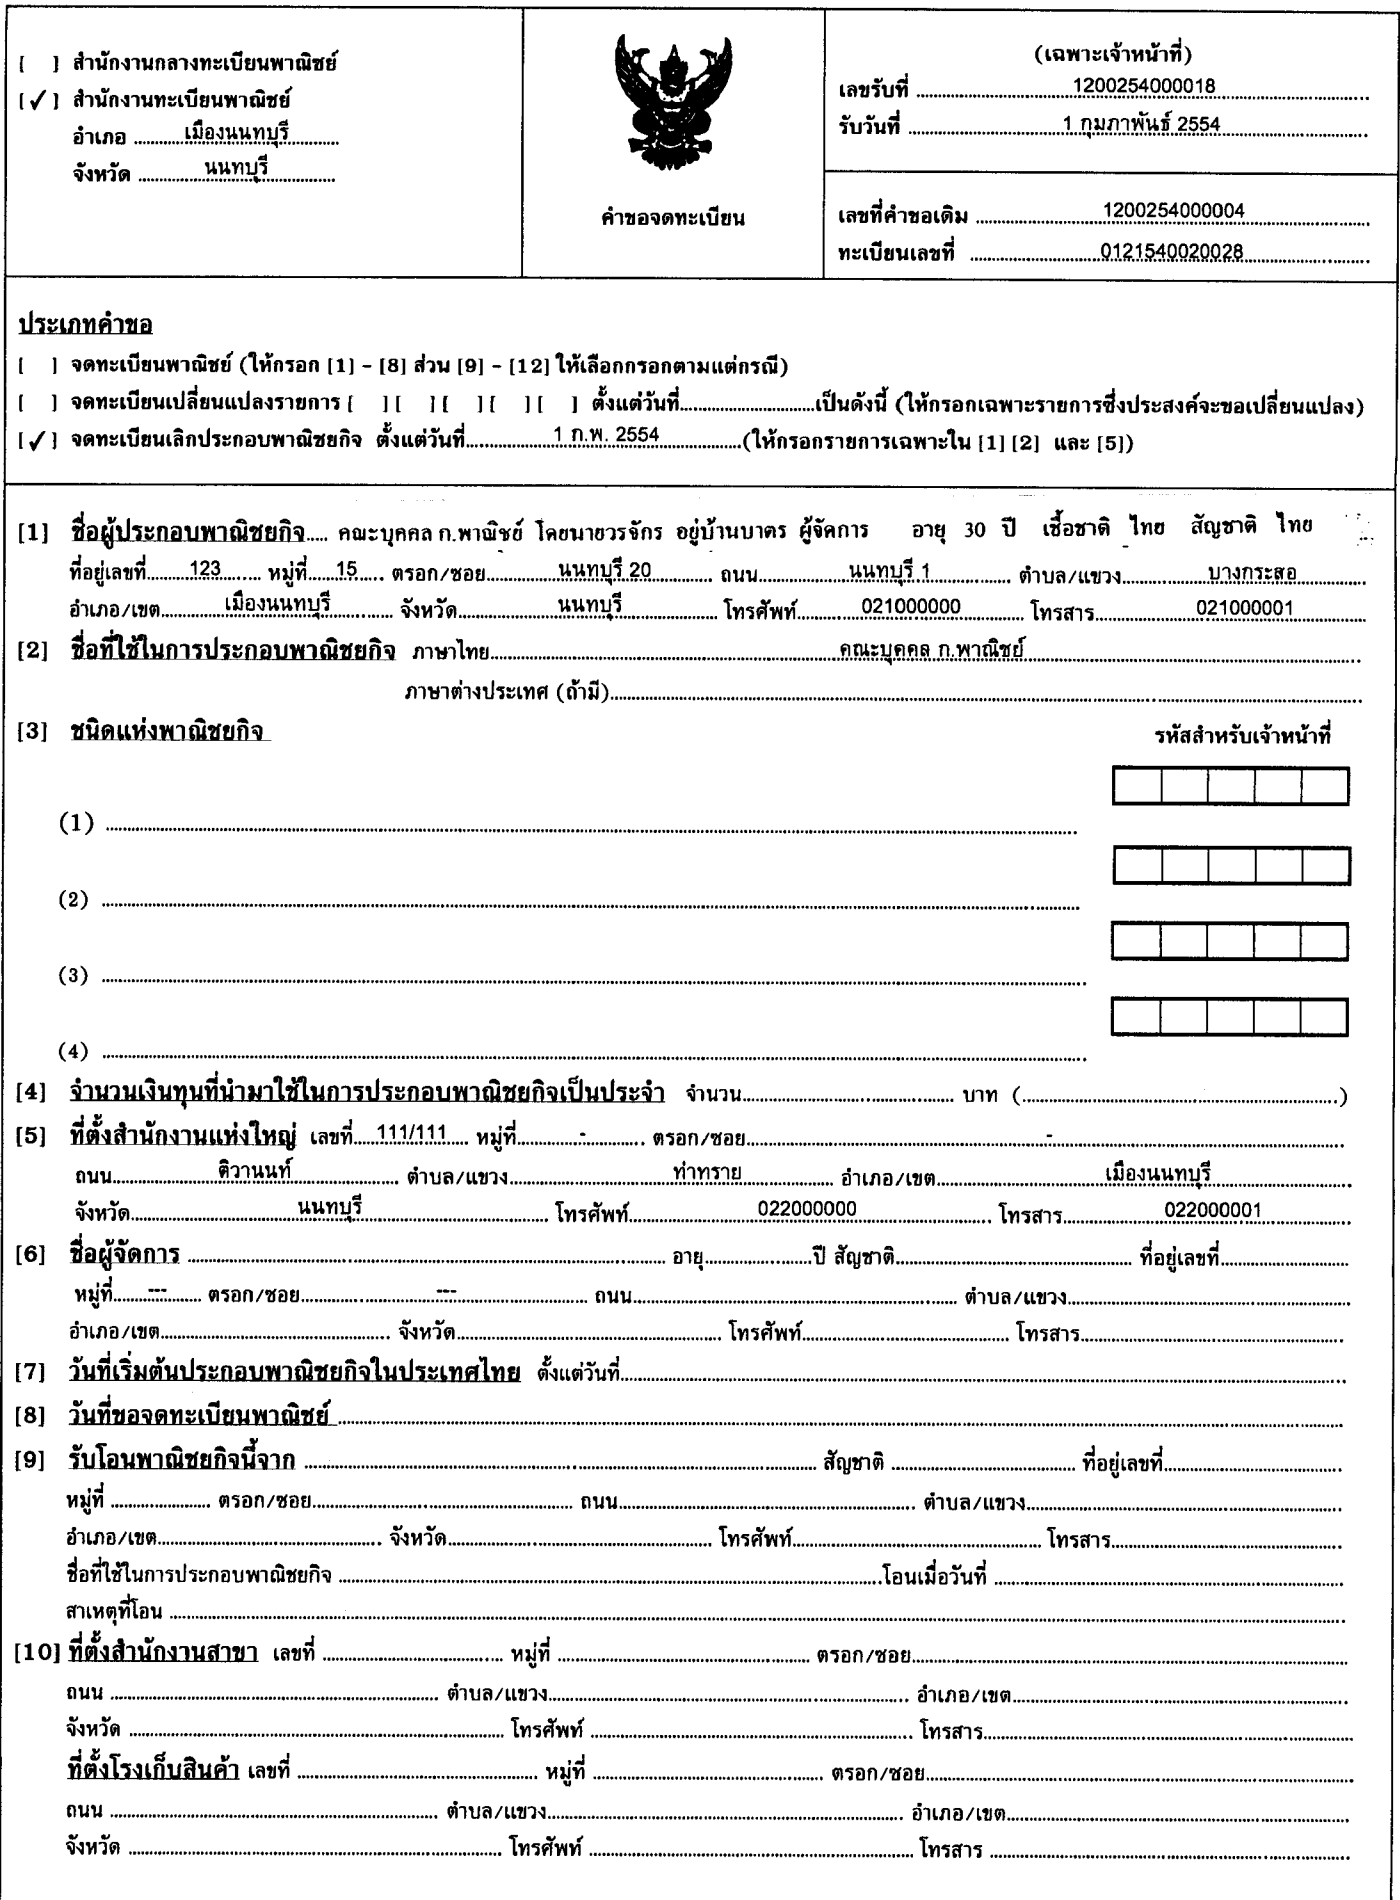 [ ] สำนักงานกลางทะเบียนพาณิชย์
[✓] สำนักงานทะเบียนพาณิชย์
อำเภอ ..........เมืองนนทบุรี..........
จังหวัด ..........นนทบุรี..........
คำขอจดทะเบียน
(เฉพาะเจ้าหน้าที่)
เลขรับที่ ..........1200254000018..........
รับวันที่ ..........1 กุมภาพันธ์ 2554..........
เลขที่คำขอเดิม ..........1200254000004..........
ทะเบียนเลขที่ ..........0121540020028..........
ประเภทคำขอ
[ ] จดทะเบียนพาณิชย์ (ให้กรอก [1] - [8] ส่วน [9] - [12] ให้เลือกกรอกตามแต่กรณี)
[ ] จดทะเบียนเปลี่ยนแปลงรายการ [ ] [ ] [ ] [ ] [ ] ตั้งแต่วันที่..........เป็นดังนี้ (ให้กรอกเฉพาะรายการซึ่งประสงค์จะขอเปลี่ยนแปลง)
[✓] จดทะเบียนเลิกประกอบพาณิชยกิจ ตั้งแต่วันที่..........1 ก.พ. 2554..........(ให้กรอกรายการเฉพาะใน [1] [2] และ [5])
[1] ชื่อผู้ประกอบพาณิชยกิจ..... คณะบุคคล ก.พาณิชย์ โดยนายวรจักร อยู่บ้านบาตร ผู้จัดการ อายุ 30 ปี เชื้อชาติ ไทย สัญชาติ ไทย
ที่อยู่เลขที่..........123.......... หมู่ที่.....15..... ตรอก/ซอย..........นนทบุรี 20.......... ถนน..........นนทบุรี 1.......... ตำบล/แขวง..........บางกระสอ..........
อำเภอ/เขต..........เมืองนนทบุรี.......... จังหวัด..........นนทบุรี.......... โทรศัพท์..........021000000.......... โทรสาร..........021000001..........
[2] ชื่อที่ใช้ในการประกอบพาณิชยกิจ ภาษาไทย..........คณะบุคคล ก.พาณิชย์..........
ภาษาต่างประเทศ (ถ้ามี)..........
[3] ชนิดแห่งพาณิชยกิจ รหัสสำหรับเจ้าหน้าที่
(1) ..........
(2) ..........
(3) ..........
(4) ..........
[4] จำนวนเงินทุนที่นำมาใช้ในการประกอบพาณิชยกิจเป็นประจำ จำนวน.......... บาท (..........)
[5] ที่ตั้งสำนักงานแห่งใหญ่ เลขที่.....111/111..... หมู่ที่..........-.......... ตรอก/ซอย..........-..........
ถนน..........ติวานนท์.......... ตำบล/แขวง..........ท่าทราย.......... อำเภอ/เขต..........เมืองนนทบุรี..........
จังหวัด..........นนทบุรี.......... โทรศัพท์..........022000000.......... โทรสาร..........022000001..........
[6] ชื่อผู้จัดการ .......... อายุ..........ปี สัญชาติ.......... ที่อยู่เลขที่..........
หมู่ที่.....---..... ตรอก/ซอย..........---.......... ถนน.......... ตำบล/แขวง..........
อำเภอ/เขต.......... จังหวัด.......... โทรศัพท์.......... โทรสาร..........
[7] วันที่เริ่มต้นประกอบพาณิชยกิจในประเทศไทย ตั้งแต่วันที่..........
[8] วันที่ขอจดทะเบียนพาณิชย์ ..........
[9] รับโอนพาณิชยกิจนี้จาก .......... สัญชาติ .......... ที่อยู่เลขที่..........
หมู่ที่ .......... ตรอก/ซอย.......... ถนน.......... ตำบล/แขวง..........
อำเภอ/เขต.......... จังหวัด.......... โทรศัพท์.......... โทรสาร..........
ชื่อที่ใช้ในการประกอบพาณิชยกิจ ..........โอนเมื่อวันที่ ..........
สาเหตุที่โอน ..........
[10] ที่ตั้งสำนักงานสาขา เลขที่ .......... หมู่ที่ .......... ตรอก/ซอย..........
ถนน .......... ตำบล/แขวง.......... อำเภอ/เขต..........
จังหวัด .......... โทรศัพท์ .......... โทรสาร..........
ที่ตั้งโรงเก็บสินค้า เลขที่ .......... หมู่ที่ .......... ตรอก/ซอย..........
ถนน .......... ตำบล/แขวง.......... อำเภอ/เขต..........
จังหวัด .......... โทรศัพท์ .......... โทรสาร ..........